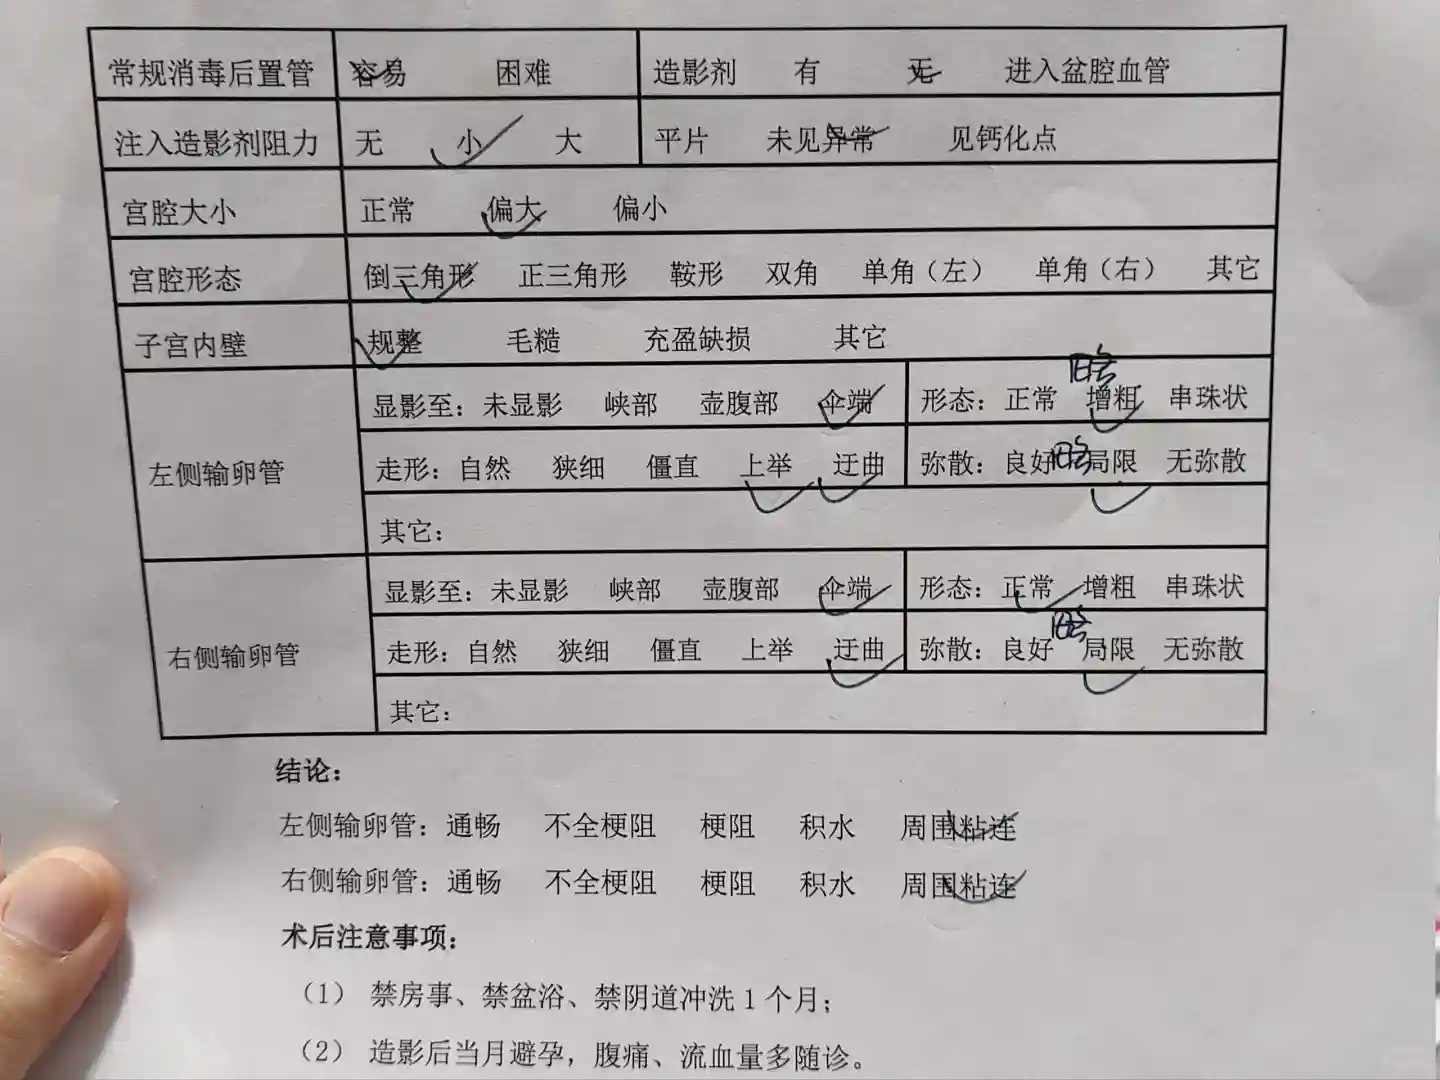 常规消毒后置管 容易 困难 造影剂 有 无 进入盆腔血管
注入造影剂阻力 无 小 大 平片 未见异常 见钙化点
宫腔大小 正常 偏大 偏小
宫腔形态 倒三角形 正三角形 鞍形 双角 单角（左） 单角（右） 其它
子宫内壁 规整 毛糙 充盈缺损 其它
左侧输卵管
显影至：未显影 峡部 壶腹部 伞端 形态：正常 略增粗 串珠状
走形：自然 狭细 僵直 上举 迂曲 弥散：良好 略局限 无弥散
其它：
右侧输卵管
显影至：未显影 峡部 壶腹部 伞端 形态：正常 增粗 串珠状
走形：自然 狭细 僵直 上举 迂曲 弥散：良好 略局限 无弥散
其它：
结论：
左侧输卵管：通畅 不全梗阻 梗阻 积水 周围粘连
右侧输卵管：通畅 不全梗阻 梗阻 积水 周围粘连
术后注意事项：
（1） 禁房事、禁盆浴、禁阴道冲洗1个月；
（2） 造影后当月避孕，腹痛、流血量多随诊。